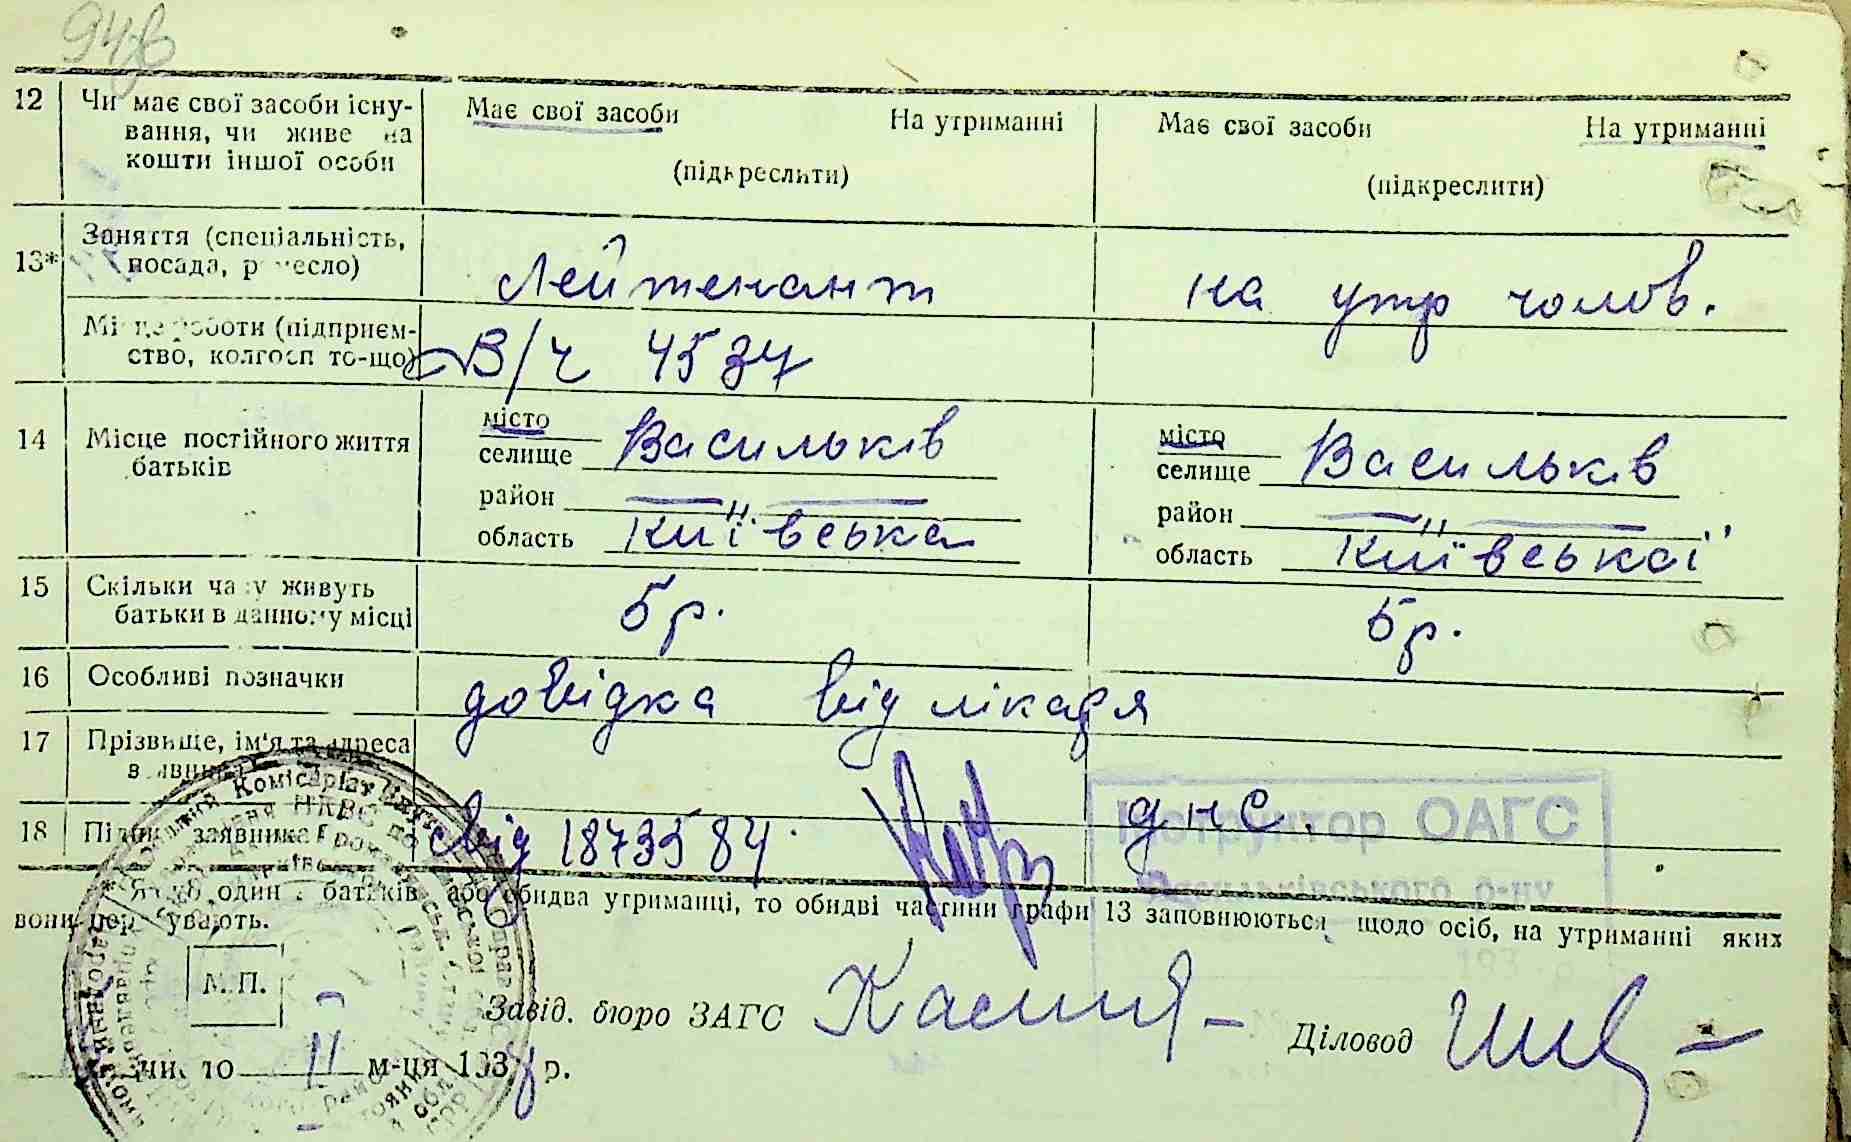 12 Чи має свої засоби існу-
вання, чи живе на
кошти іншої особи
Має свої засоби На утриманні
(підкреслити)
Має свої засоби На утриманні
(підкреслити)
13* Заняття (спеціальність,
посада, ремесло)
Лейтенант
на утр чолов.
Місце роботи (підприєм-
ство, колгосп то-що)
В/ч 4534
14 Місце постійного життя
батьків
місто
селище Васильків
район
область Київська
місто
селище Васильків
район
область Київської
15 Скільки часу живуть
батьки в данному місці
5 р.
5 р.
16 Особливі позначки
довідка від лікаря
17 Прізвище, ім'я та адреса
заявника
18 Підпис заявника
свід 1873584.
днс.
Інструктор ОАГС
Васильківського р-ну
* Якщо один з батьків або обидва утриманці, то обидві частини графи 13 заповнюються щодо осіб, на утриманні яких
вони перебувають.
М.П.
Завід. бюро ЗАГС
Діловод
число 11 м-ця 193 р.